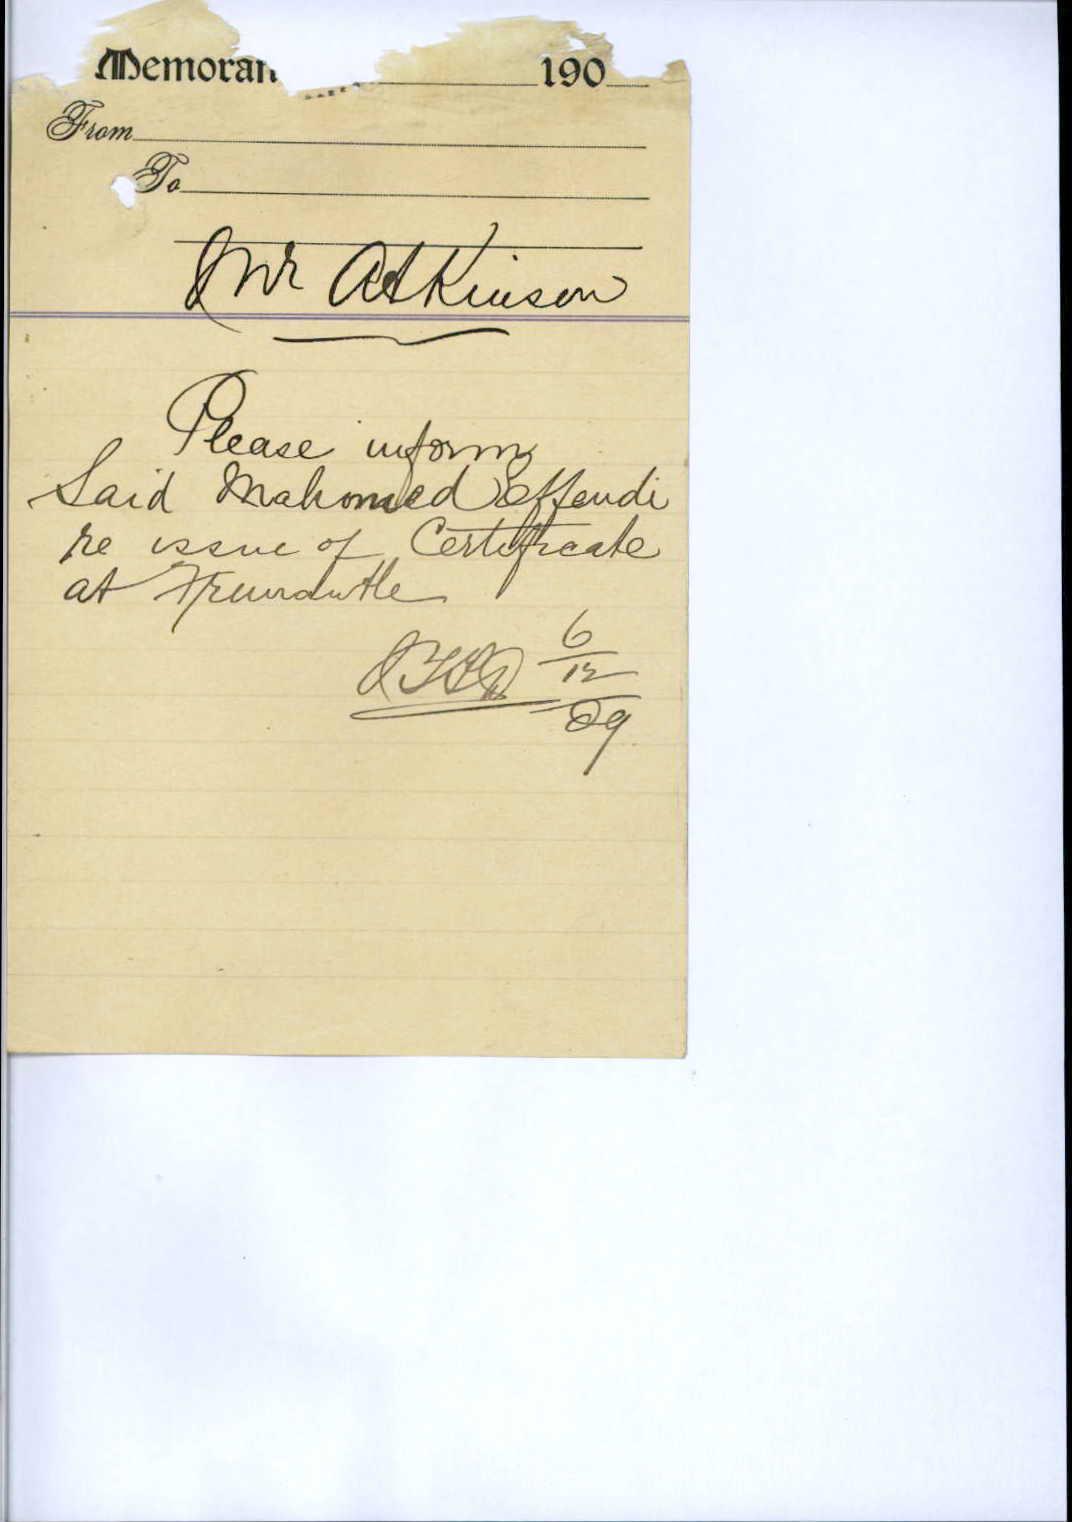 Memoran 190
From
To
Mr Atkinson
Please inform
Said Mahomed Effendi
re issue of Certificate
at Fremantle
6
12
09